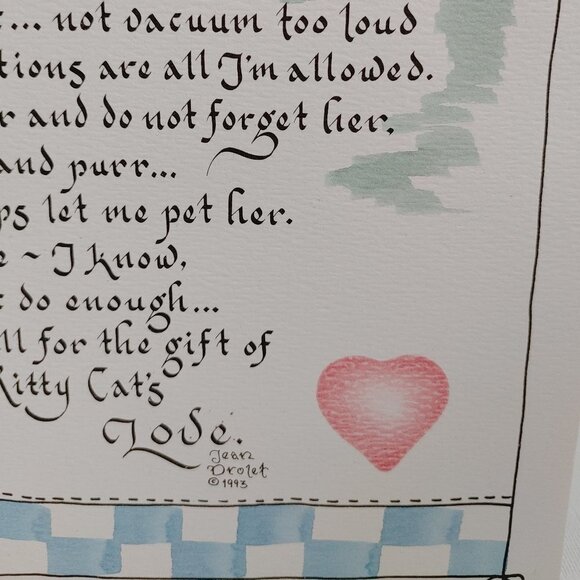 ... not vacuum too loud
tions are all I'm allowed.
r and do not forget her,
and purr...
ps let me pet her.
e ~ I know,
t do enough...
ll for the gift of
Kitty Cat's
Love.
Jean
Drolet
© 1993